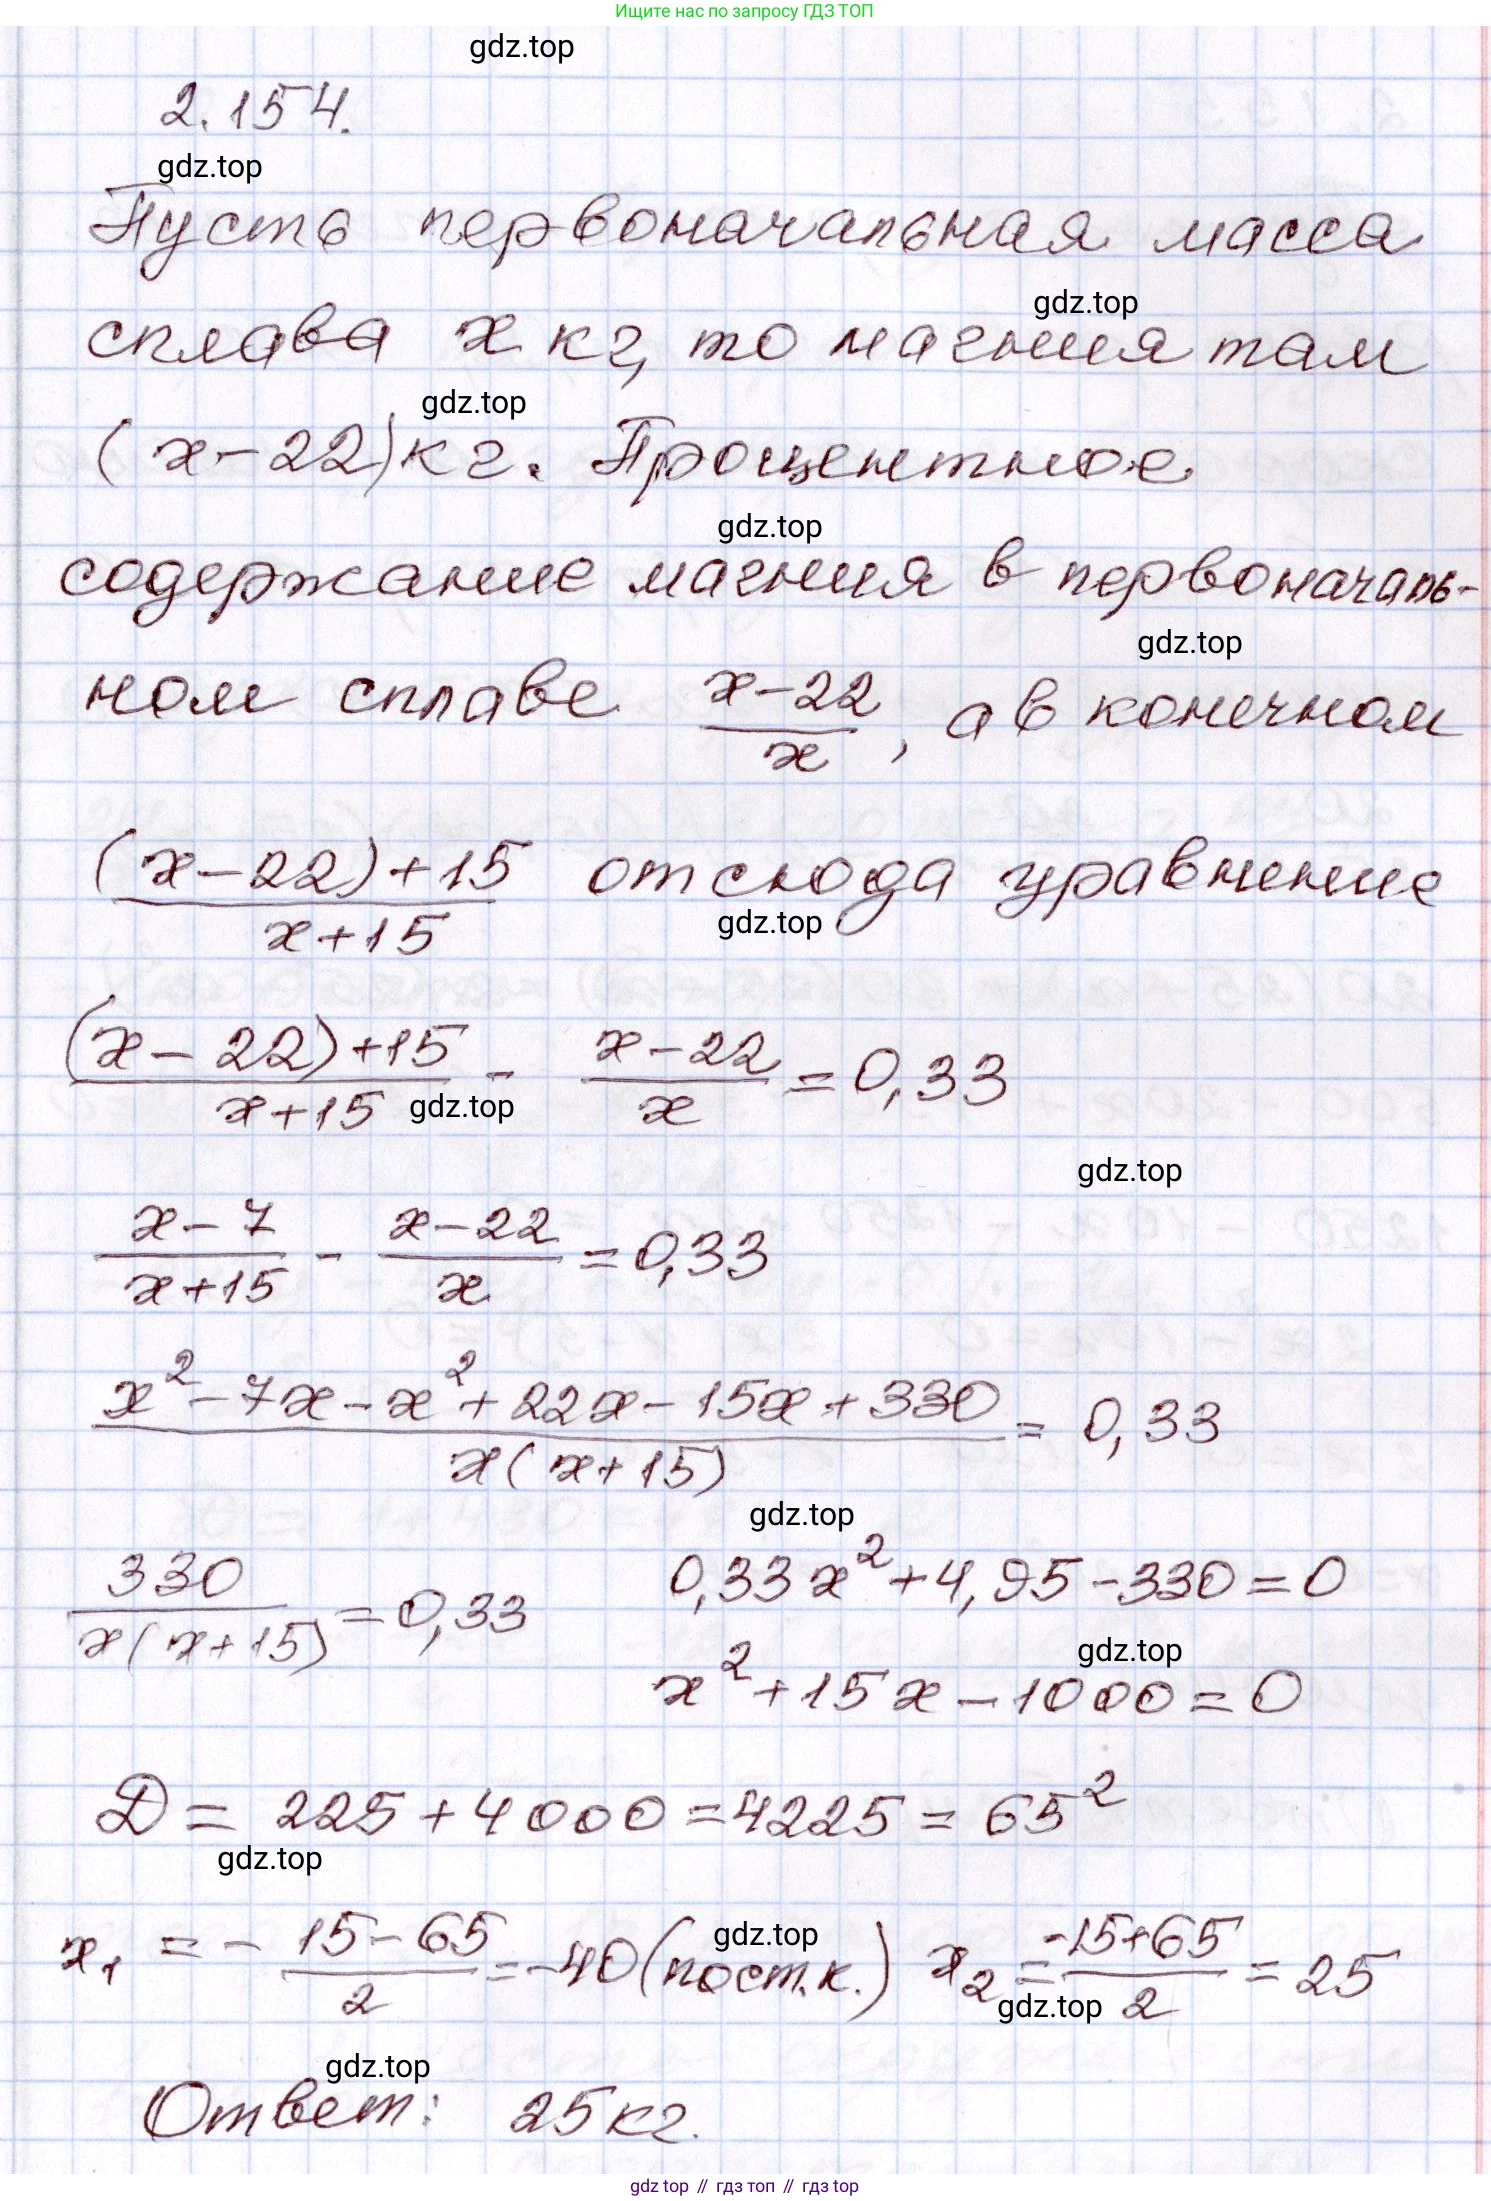 Ищите нас по запросу ГДЗ ТОП
gdz.top
2.154.
gdz.top
Пусть первоначальная масса
gdz.top
сплава x кг, то магния там
gdz.top
(x-22)кг. Процентное
gdz.top
содержание магния в первоначаль-
gdz.top
ном сплаве (x-22)/x, а в конечном
((x-22)+15)/(x+15) отсюда уравнение
gdz.top
((x-22)+15)/(x+15) - (x-22)/x = 0,33
gdz.top
gdz.top
(x-7)/(x+15) - (x-22)/x = 0,33
(x²-7x-x²+22x-15x+330)/(x(x+15)) = 0,33
gdz.top
330/(x(x+15)) = 0,33 0,33x²+4,95-330=0
gdz.top
x²+15x-1000=0
D = 225+4000=4225=65²
gdz.top
gdz.top
x₁ = - (15-65)/2 = -40 (пост.к.) x₂ = (-15+65)/2 = 25
gdz.top
gdz.top
Ответ: 25кг.
gdz top // гдз топ // гдз top